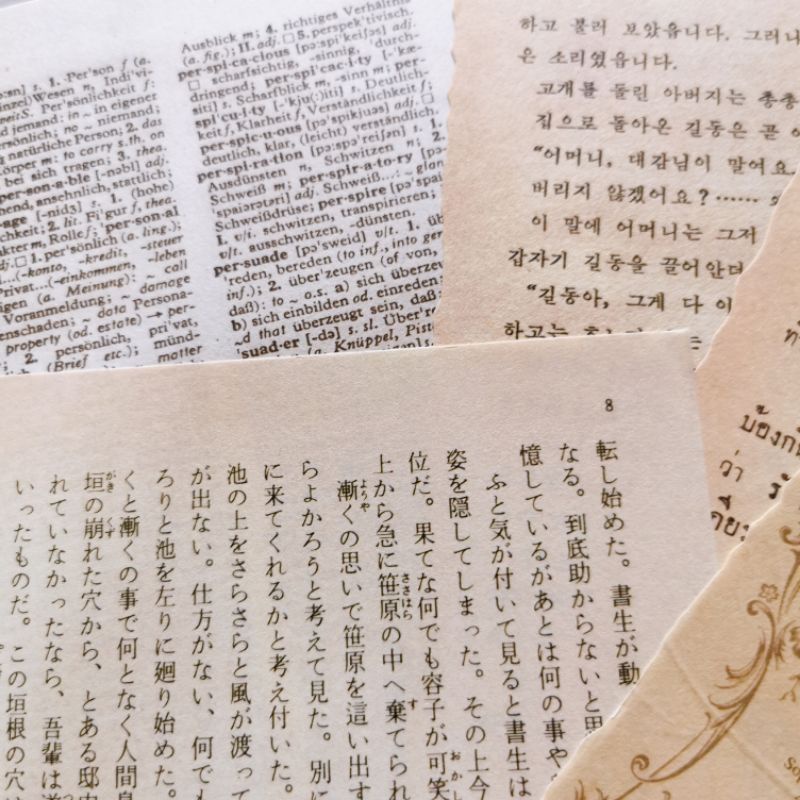 Per'son f (a.
Wesen n, Indi'vi-
Per'sönlichkeit f:
jemand: in ~ in eigener
no ~ niemand; 2. das
natürliche Person;
m: to carry s.th. on
bei sich tragen; 3. thea.
per·son·a·ble [-nəbl] adj.
ansehnlich, stattlich;
-age [-nidʒ] s. 1. (hohe)
2. lit. Fi'gur f, thea.
m, Rolle f; 'per·son·al
1. per'sönlich (a. ling.);
(-konto, -kredit, -steuer
Privat...(-einkommen, -leben
(a. Meinung): ~ call
Voranmeldung; ~ damage
~ data Persona-
property (od. estate) → per-
2. persönlich, pri'vat,
(Brief etc.); münd-
matter
Ausblick m; 4. richtiges Verhältnis
(a. fig.); II. adj. □ 5. perspek'tivisch.
per·spi·ca·cious [pə:spi'keiʃəs] adj.
□ scharfsichtig, -sinnig, 'durch-
dringend; per·spi·cac·i·ty [-'kæ-
siti] s. Scharfblick m, -sinn m; per-
spi·cu·i·ty [-'kju(:)iti] s. Deutlich-
keit f, Klarheit f, Verständlichkeit f;
per·spic·u·ous [pə'spikjuəs] adj. □
deutlich, klar, (leicht) verständlich.
per·spi·ra·tion [pə:spə'reiʃən] s. 1.
Ausdünsten n, Schwitzen n; 2.
Schweiß m; per·spir·a·to·ry [pəs-
'paiərətəri] adj. Schweiß...: ~ glan
Schweißdrüse; per·spire [pəs'pa
I. v/i. schwitzen, transpirieren;
v/t. ausschwitzen, -dünsten.
per·suade [pə'sweid] v/t. 1. üb
'reden, bereden (to inf., into ger
inf.); 2. über'zeugen (of von,
daß): to ~ o.s. a) sich überze
b) sich einbilden od. einreden;
~d that überzeugt sein, daß
'suad·er [-də] s. sl. 'Über're
(a. Knüppel, Pisto
하고 불러 보았읍니다. 그러니
은 소리였읍니다.
고개를 돌린 아버지는 총총
집으로 돌아온 길동은 곧 어
“어머니, 대감님이 말여요.
버리지 않겠어요?……
이 말에 어머니는 그저
갑자기 길동을 끌어안더
“길동아, 그게 다 이
하고는
ว่า
8
転し始めた。書生が動
なる。到底助からないと思
憶しているがあとは何の事や
ふと気が付いて見ると書生は
姿を隠してしまった。その上今
位だ。果てな何でも容子が可笑
上から急に笹原の中へ棄てられ
漸くの思いで笹原を這い出す
らよかろうと考えて見た。別に
に来てくれるかと考え付いた。
池の上をさらさらと風が渡って
が出ない。仕方がない、何でも
ろりと池を左りに廻り始めた。
くと漸くの事で何となく人間臭
垣の崩れた穴から、とある邸内
れていなかったなら、吾輩は遂
いったものだ。この垣根の穴は